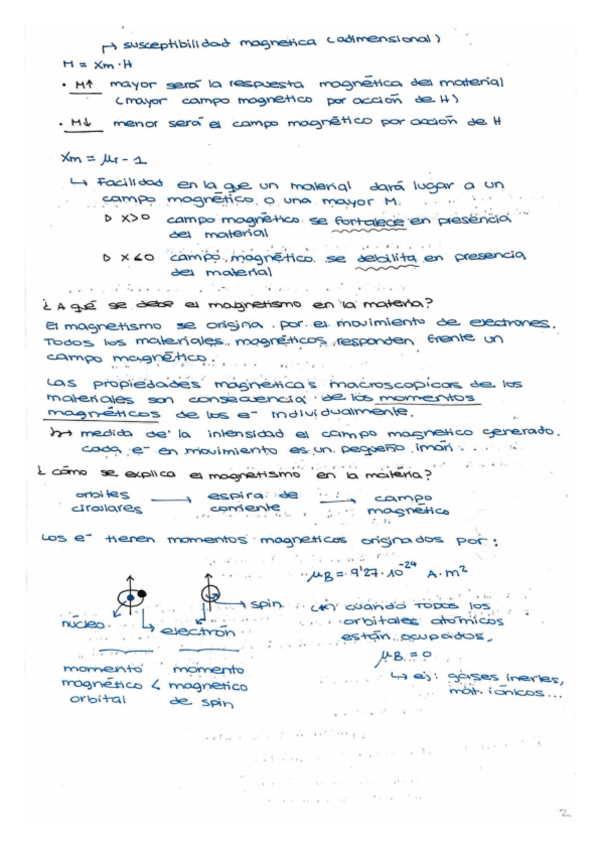 ↱ susceptibilidad magnética (adimensional)
M = Xm · H
· M↑ mayor será la respuesta magnética del material
(mayor campo magnético por acción de H)
· M↓ menor será el campo magnético por acción de H
Xm = μr - 1
↳ Facilidad en la que un material dará lugar a un
campo magnético o una mayor M.
▷ X>0 campo magnético se fortalece en presencia
del material
▷ X<0 campo magnético se debilita en presencia
del material
¿A qué se debe el magnetismo en la materia?
El magnetismo se origina por el movimiento de electrones.
Todos los materiales magnéticos responden frente un
campo magnético.
Las propiedades magnéticas macroscopicas de los
materiales son consecuencia de los momentos
magnéticos de los e- individualmente.
↳ medida de la intensidad el campo magnetico generado.
cada e- en movimiento es un pequeño imán.
¿cómo se explica el magnetismo en la materia?
orbiles → espira de → campo
circulares corriente magnético
Los e- tienen momentos magneticos originados por:
μB = 9'27·10-24 A·m2
núcleo ↳ electrón → spin
(*) cuando TODOS los
orbitales atómicos
están ocupados,
μB = 0
↳ ej: gases inertes,
mat. iónicos...
momento momento
magnético < magnetico
orbital de spin
2